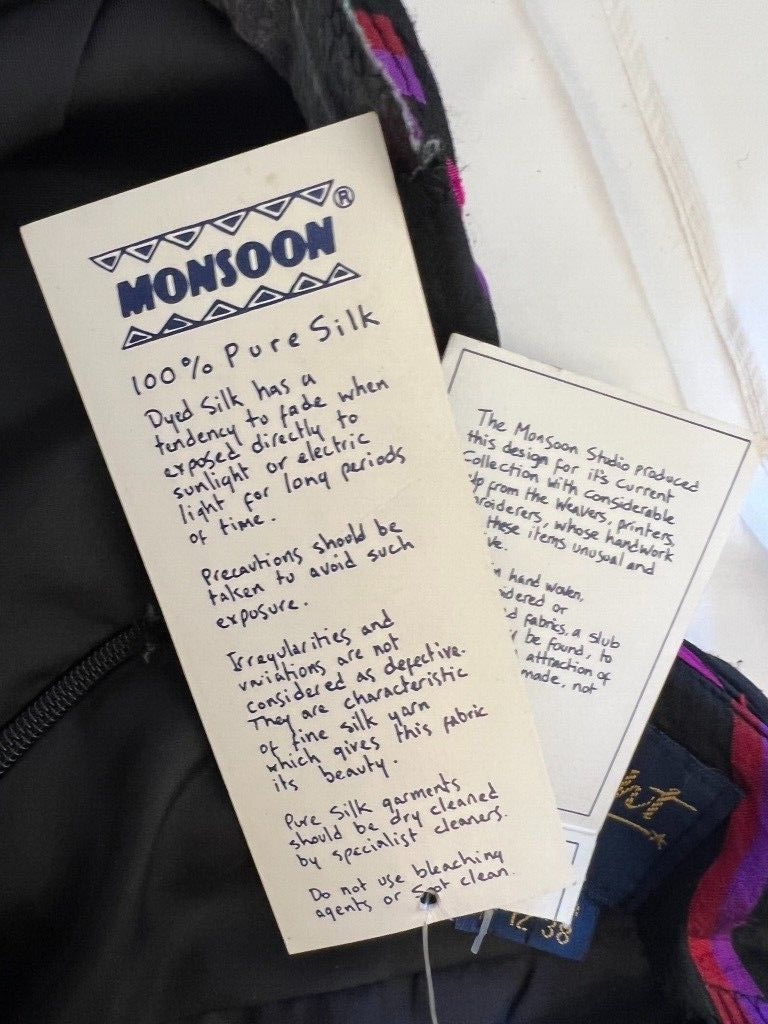 MONSOON ®
100% Pure Silk
Dyed Silk has a
tendency to fade when
exposed directly to
sunlight or electric
light for long periods
of time.
Precautions should be
taken to avoid such
exposure.
Irregularities and
variations are not
considered as defective.
They are characteristic
of fine silk yarn
which gives this fabric
its beauty.
Pure Silk garments
should be dry cleaned
by specialist cleaners.
Do not use bleaching
agents or Spot clean.
The Monsoon Studio produced
this design for it's current
Collection with considerable
from the Weavers, printers,
whose handwork
these items unusual and
hand woven,
or
fabrics, a slub
be found, to
attraction of
made, not
12 38